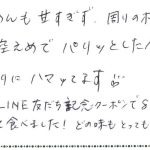 んも甘すぎず、周りの
控えめで パリッとした
りに ハマッてます
LINE友だち記念クーポンでS
て食べました！ どの味も とっても